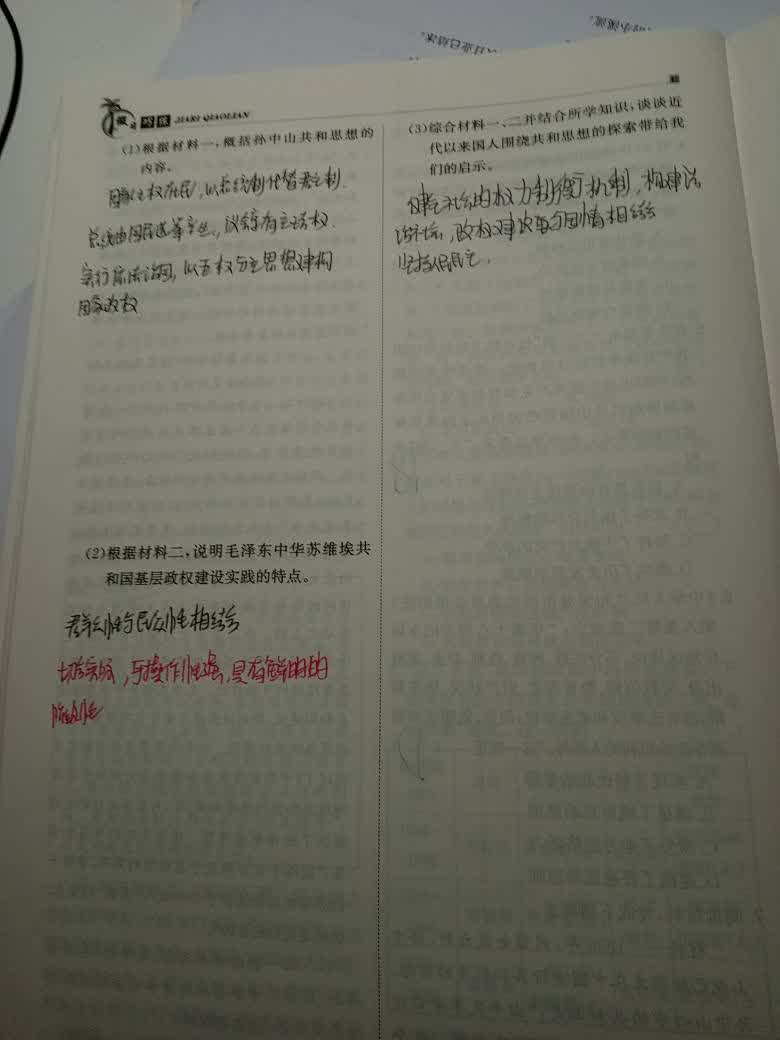 假期 巧练 JIAQI QIAOLIAN
(1)根据材料一,概括孙中山共和思想的
内容。
国家主权在民,以总统制代替君主制.
总统由国民选举产生,议会有立法权.
实行依法治国,以五权分立思想建构
国家政权
(2)根据材料二,说明毛泽东中华苏维埃共
和国基层政权建设实践的特点。
群众性与民众性相结合
切合实际,可操作性强,具有鲜明的
阶级性
(3)综合材料一、二并结合所学知识,谈谈近
代以来国人围绕共和思想的探索带给我
们的启示。
建立社会的权力制衡机制,构建法
治社会,政权建设要与国情相结合
坚持人民民主.